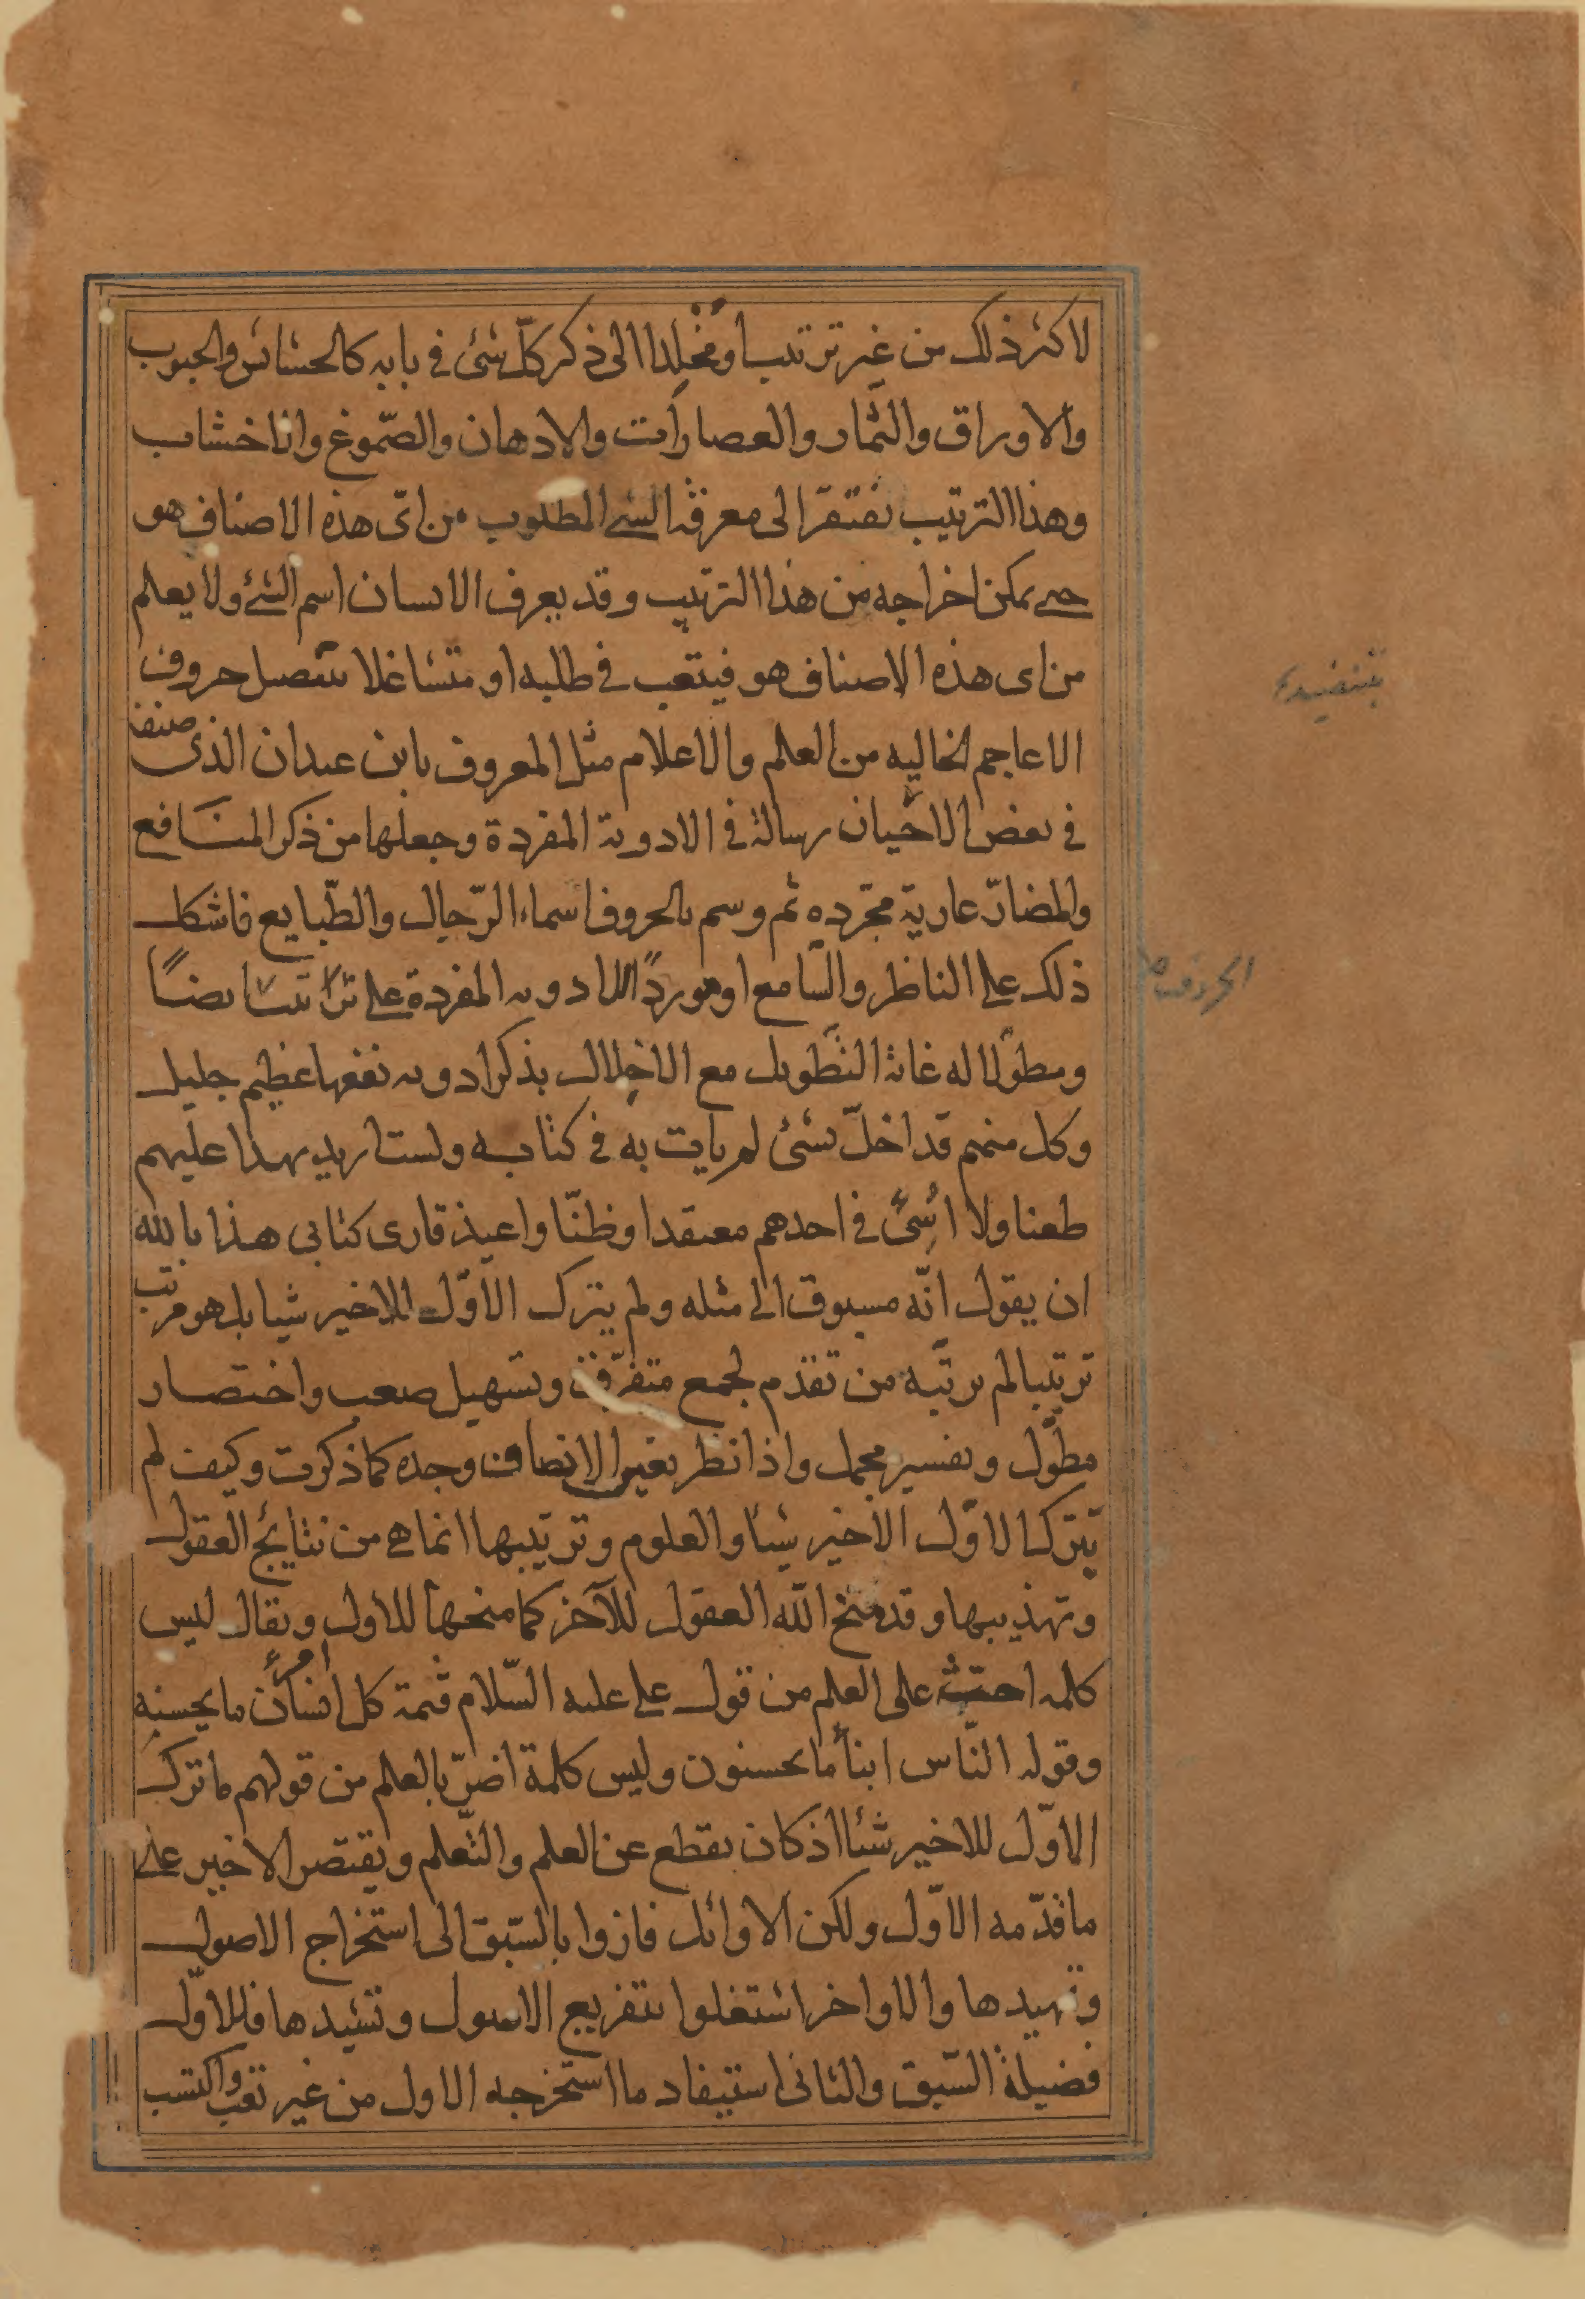 لاكثر ذلك من غير ترتيب او مخلدا الى ذكر كلّ شئ في بابه كالحشائش والحبوب
والاوراق والثمار والعصارات والادهان والصّموغ واناخشاب
وهذا الترتيب تفتقر الى معرفة الشئ المطلوب من اىّ هذه الاصناف هو
حتى يمكن اخراجه من هذا الترتيب وقد يعرف الانسان اسم الشئ ولا يعلم
من اى هذه الاصناف هو فيتعب في طلبه او متشاغلا حروف
الاعاجم الخاليه من العلم والاعلام مثل المعروف بابن عبدان الذى صنف
في بعض الاحيان رسالة في الادوية المفردة وجعلها من ذكر المنافع
والمضارّ عارية مجرّده ثم وسم بالحروف اسماء الرّجال والطّبايع فاشكل
ذلك على الناظر والسّامع او موردًا للادويه المفردة على ايضًا
ومطوّلا له غاية التّطويل مع الاخلال بذكر ادويه نفعها عظيم جليل
وكل منهم قد اخلّ بشئ لم يايت به في كتابه ولست اريد بهذا عليهم
طعنا ولا اسئ في احدهم معتقدا وظنّا واعيذ قارى كتابى هذا بالله
ان يقول انّه مسبوق الى مثله ولم يترك الاوّل للاخير شيا بل هو مرتب
ترتيبا لم يرتّبه من تقدّم لجمع متفرّق وتسهيل صعب واختصار
مطوّل وتفسير مجمل واذا نظر بعين الانصاف وجده كما ذكرت وكيف لم
يترك الاوّل الاخير شيئا والعلوم وترتيبها انما هى من نتائج العقول
وتهذيبها وقد منح الله العقول للآخر كما منحها للاول ويقال ليس
كلمه احثّ على العلم من قول على عليه السّلام قيمة كل امرء انسان ما يحسنه
وقوله النّاس ابنأ ما يحسنون وليس كلمة اضرّ بالعلم من قولهم ما ترك
الاوّل للاخير شئا اذ كان يقطع عن العلم والتّعلم ويقتصر الاخير على
ما قدّمه الاوّل ولكن الاوائل فازوا بالسّبق الى استخراج الاصول
وتمهيدها والاواخر اشتغلوا بتفريع الاصول وتشئيدها فللاوّل
فضيلة السّبق والثانى استيفاد ما استخرجه الاول من غير تعب واكتسب